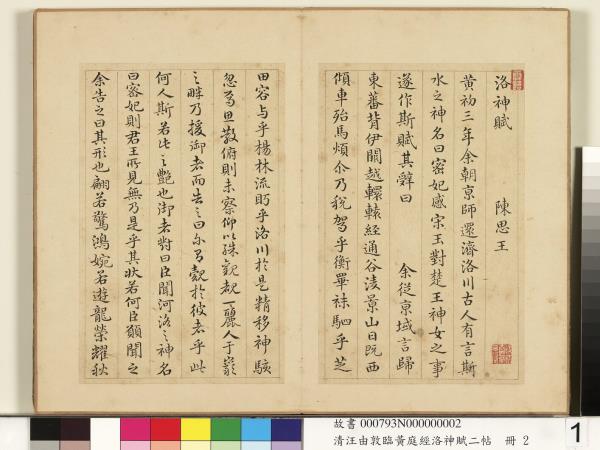 洛神賦 陳思王
黃初三年余朝京師還濟洛川古人有言斯
水之神名曰宓妃感宋玉對楚王神女之事
遂作斯賦其辭曰 余從京域言歸
東藩背伊闕越轘轅經通谷淩景山日既西
傾車殆馬煩尒乃稅駕乎衡皋秣駟乎芝
田容与乎楊林流眄乎洛川於是精移神駭
忽焉思散俯則未察仰以殊觀覩一麗人于巖
之畔乃援御者而告之曰尒有覿於彼者乎此
何人斯若此之艷也御者對曰臣聞河洛之神名
曰宓妃則君王所見無乃是乎其狀若何臣願聞之
余告之曰其形也翩若驚鴻婉若遊龍榮耀秋
故書 000793N000000002
清汪由敦臨黃庭經洛神賦二帖 冊 2
1